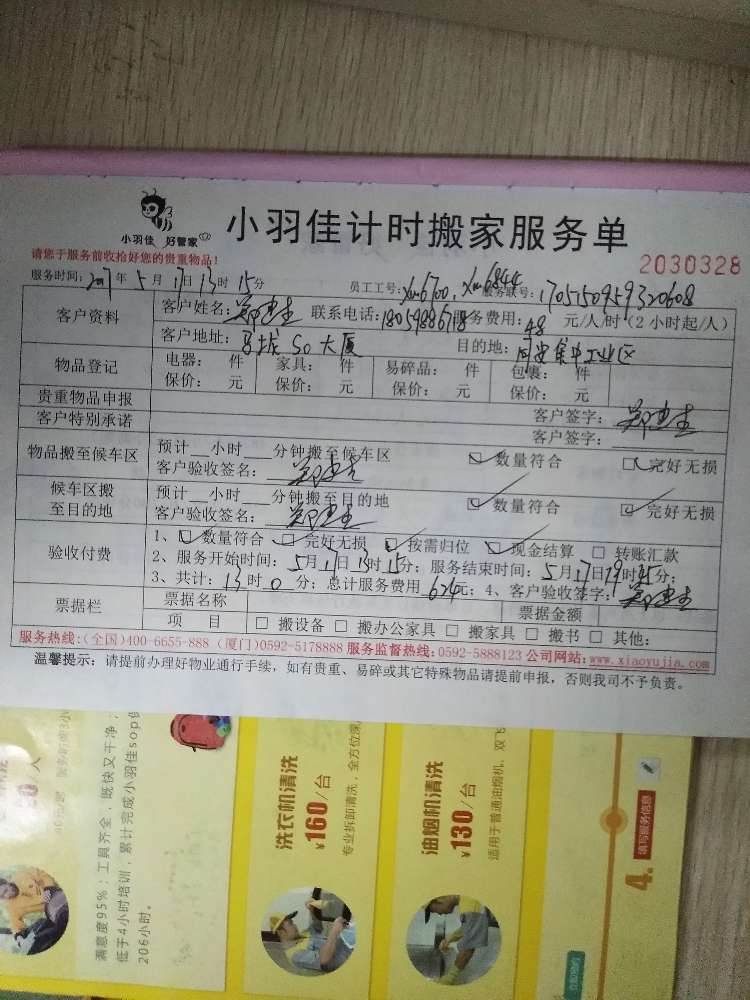 小羽佳 好管家
小羽佳计时搬家服务单
请您于服务前收拾好您的贵重物品!
2030328
服务时间: 2017年 5月 17日 13时 15分 员工工号: xm6700, xm6844 服务联号: 1705150959320608
客户资料 客户姓名: 联系电话: 服务费用: 48 元/人/时(2小时起/人)
客户地址: SO大厦 目的地: 同安集中工业区
物品登记 电器: 件 家具: 件 易碎品: 件 包裹: 件
保价: 元 保价: 元 保价: 元 保价: 元
贵重物品申报 客户签字:
客户特别承诺 客户签字:
物品搬至候车区 预计__小时___分钟搬至候车区 数量符合 完好无损
客户验收签名:
候车区搬至目的地 预计__小时___分钟搬至目的地 数量符合 完好无损
客户验收签名:
验收付费 1、数量符合 完好无损 按需归位 现金结算 转账汇款
2、服务开始时间: 5月17日13时15分; 服务结束时间: 5月17日19时45分;
3、共计: 13时0分; 总计服务费用 624元; 4、客户验收签字:
票据栏 票据名称 票据金额
项 目 搬设备 搬办公家具 搬家具 搬书 其他:
服务热线:(全国)400-6655-888 (厦门)0592-5178888 服务监督热线:0592-5888123 公司网站:www.xiaoyujia.com
温馨提示: 请提前办理好物业通行手续, 如有贵重、易碎或其它特殊物品请提前申报, 否则我司不予负责。
满意度95%; 工具齐全, 既快又干净;
低于4小时培训, 累计完成小羽佳sop
206小时。
洗衣机清洗
¥160/台
专业拆卸清洗, 全方位
油烟机清洗
¥130/台
适用于普通油烟机, 双飞
4.
填写服务信息
立即预约